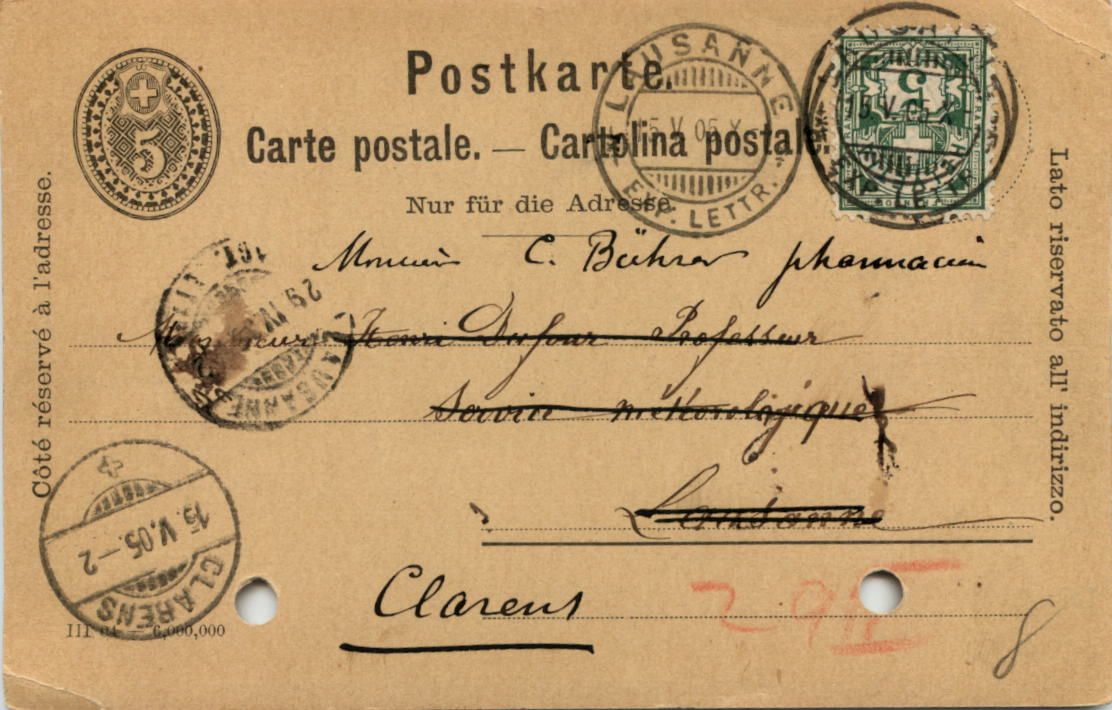 Postkarte.
Carte postale. — Cartolina postale.
Nur für die Adresse.
Côté réservé à l'adresse.
Lato riservato all' indirizzo.
5
5
LAUSANNE
15 V 05 X-
EXP. LETTR.
LAUSANNE
15 V 05 XI
EXP. LETTR.
Monsieur C. Bührer pharmacien
Monsieur Henri Dufour Professeur
Service météorologique
Lausanne
Clarens
LAUSANNE
29 IV
CLARENS
15 V.05.-2
III 04 — 6,000,000
8